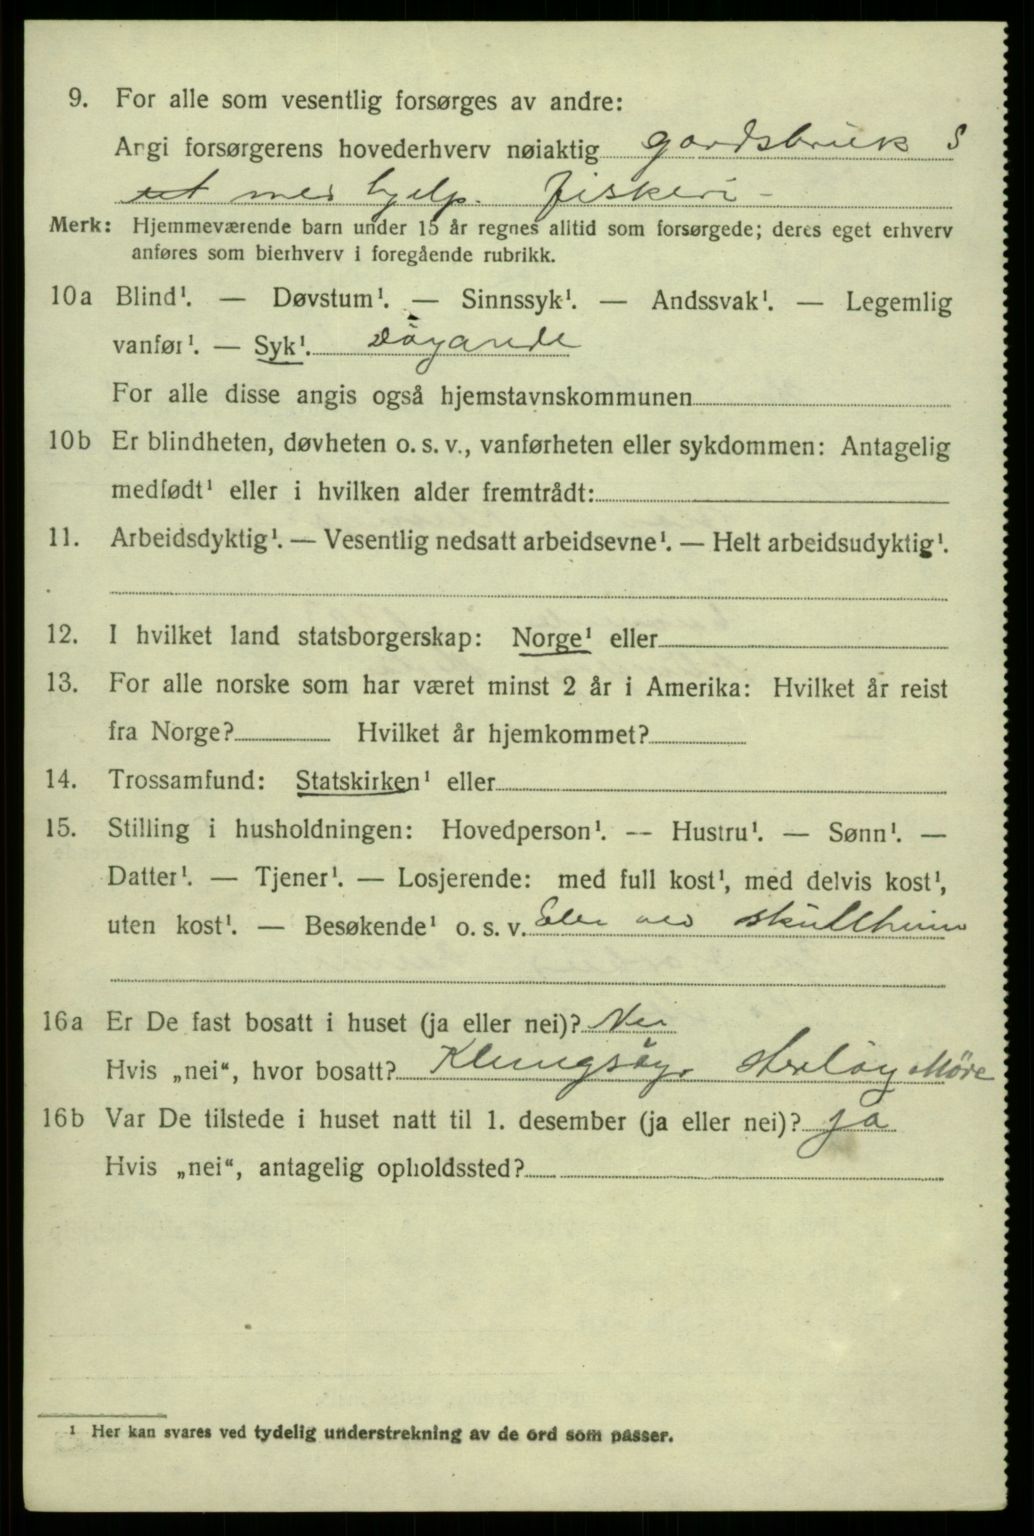 9. For alle som vesentlig forsørges av andre:
Angi forsørgerens hovederhverv nøiaktig gardsbruk S
med hjelp. fiskeri -
Merk: Hjemmeværende barn under 15 år regnes alltid som forsørgede; deres eget erhverv
anføres som bierhverv i foregående rubrikk.
10a Blind¹. — Døvstum¹. — Sinnssyk¹. — Andssvak¹. — Legemlig
vanfør¹. — Syk¹.
For alle disse angis også hjemstavnskommunen
10b Er blindheten, døvheten o. s. v., vanførheten eller sykdommen: Antagelig
medfødt¹ eller i hvilken alder fremtrådt:
11. Arbeidsdyktig¹. — Vesentlig nedsatt arbeidsevne¹. — Helt arbeidsudyktig¹.
12. I hvilket land statsborgerskap: Norge¹ eller
13. For alle norske som har været minst 2 år i Amerika: Hvilket år reist
fra Norge? Hvilket år hjemkommet?
14. Trossamfund: Statskirken¹ eller
15. Stilling i husholdningen: Hovedperson¹. — Hustru¹. — Sønn¹. —
Datter¹. — Tjener¹. — Losjerende: med full kost¹, med delvis kost¹,
uten kost¹. — Besøkende¹ o. s. v. Elev ved
16a Er De fast bosatt i huset (ja eller nei)? Nei
Hvis „nei“, hvor bosatt? Klungsöyr Møre
16b Var De tilstede i huset natt til 1. desember (ja eller nei)? ja
Hvis „nei“, antagelig opholdssted?
¹ Her kan svares ved tydelig understrekning av de ord som passer.